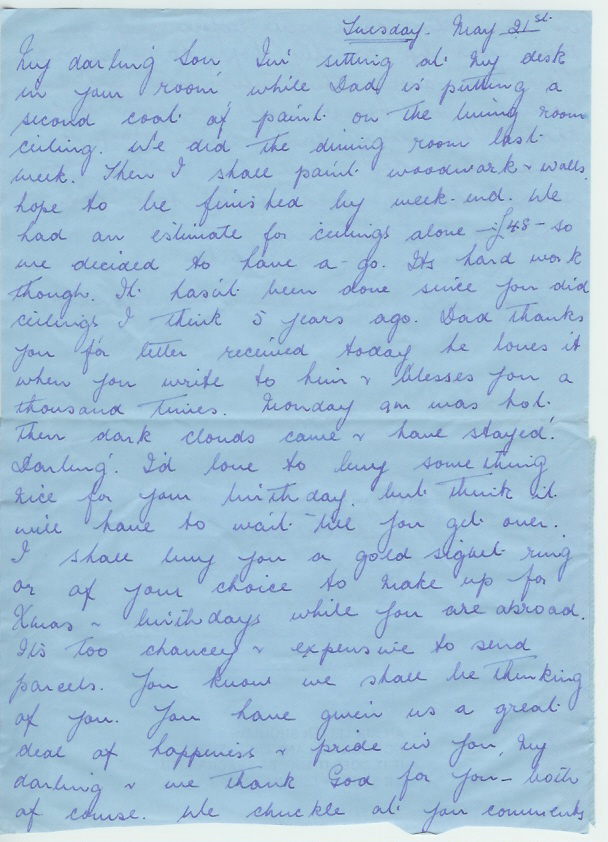 Tuesday. May 21st.
My darling Son I'm sitting at my desk
in your room while Dad is putting a
second coat of paint on the living room
ceiling. We did the dining room last
week. Then I shall paint woodwork & walls
hope to be finished by week-end. We
had an estimate for ceilings alone - £48 - so
we decided to have a go. Its hard work
though. It hasn't been done since you did
ceilings I think 5 years ago. Dad thanks
you for letter received today he loves it
when you write to him & blesses you a
thousand times. Monday am was hot.
Then dark clouds came & have stayed.
Darling. I'd love to buy something
nice for your birthday. but think it
will have to wait till you get over.
I shall buy you a gold signet ring
or of your choice to make up for
Xmas & birthdays while you are abroad.
Its too chancey & expensive to send
parcels. You know we shall be thinking
of you. You have given us a great
deal of happiness & pride in you, My
darling & we thank God for you - both
of course. We chuckle at your comments